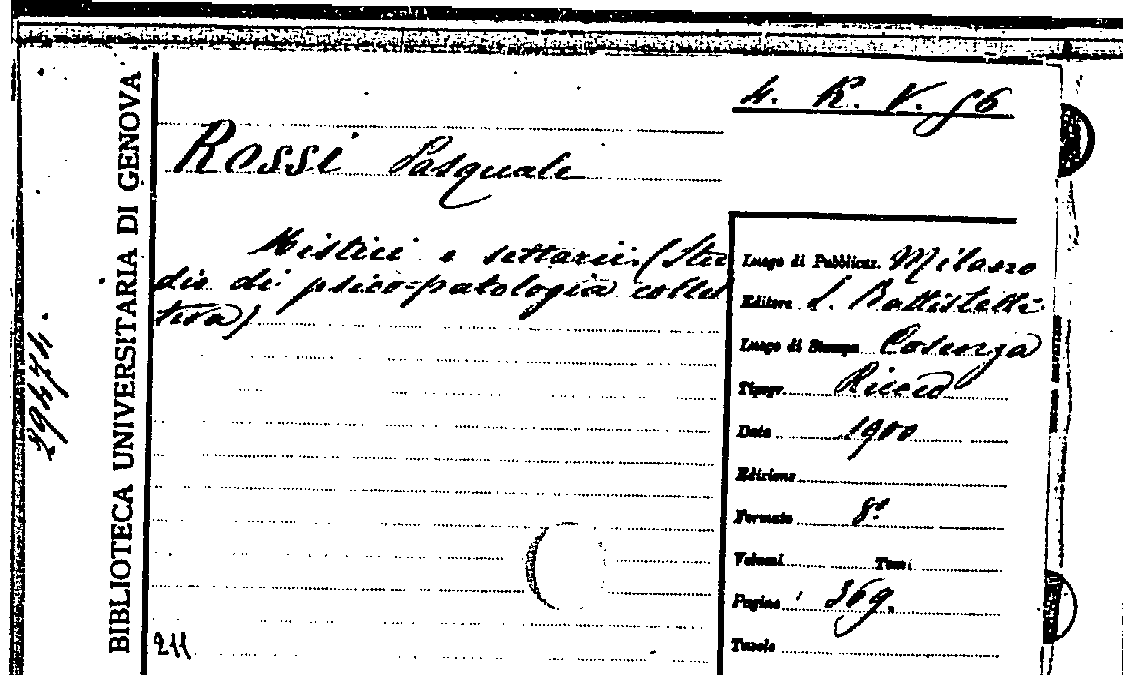 4. R. V. 56
ROSSI Pasquale
Mistici e settarii. (Stu
dio di psico-patologia collet
tiva)
Luogo di Pubblicaz. Milano
Editore L. Battistelli
Luogo di Stampa Cosenza
Tipogr. Riccio
Data 1900
Edizione
Formato 8°
Volumi Tomi
Pagine 369.
Tavole
BIBLIOTECA UNIVERSITARIA DI GENOVA
211